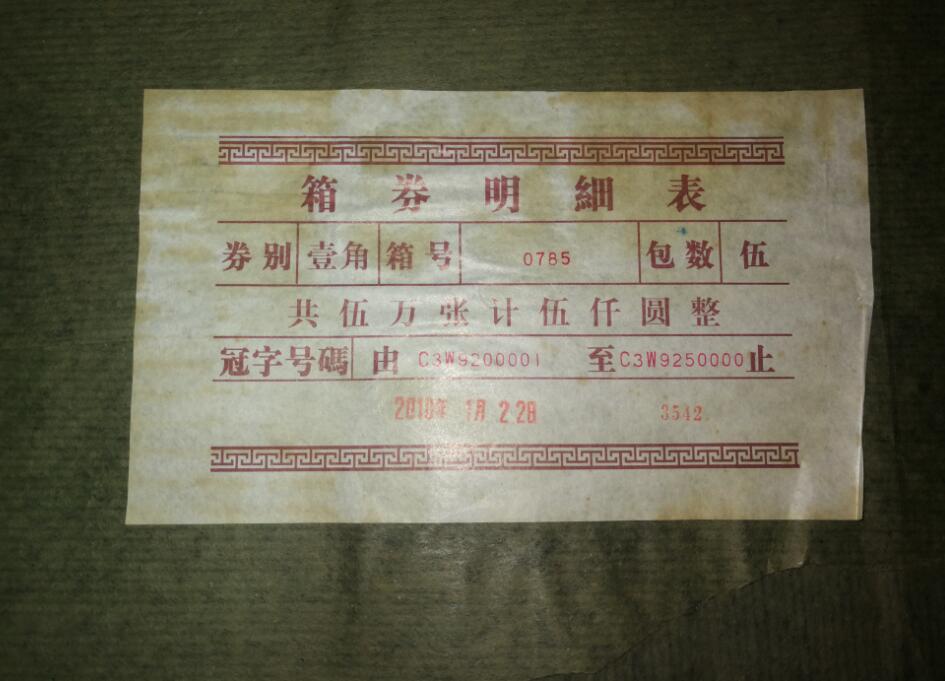 箱券明細表
券别 壹角 箱号 0785 包数 伍
共伍万张计伍仟圆整
冠字号碼 由 C3W9200001 至 C3W9250000 止
2010年 1月 2 28 3542